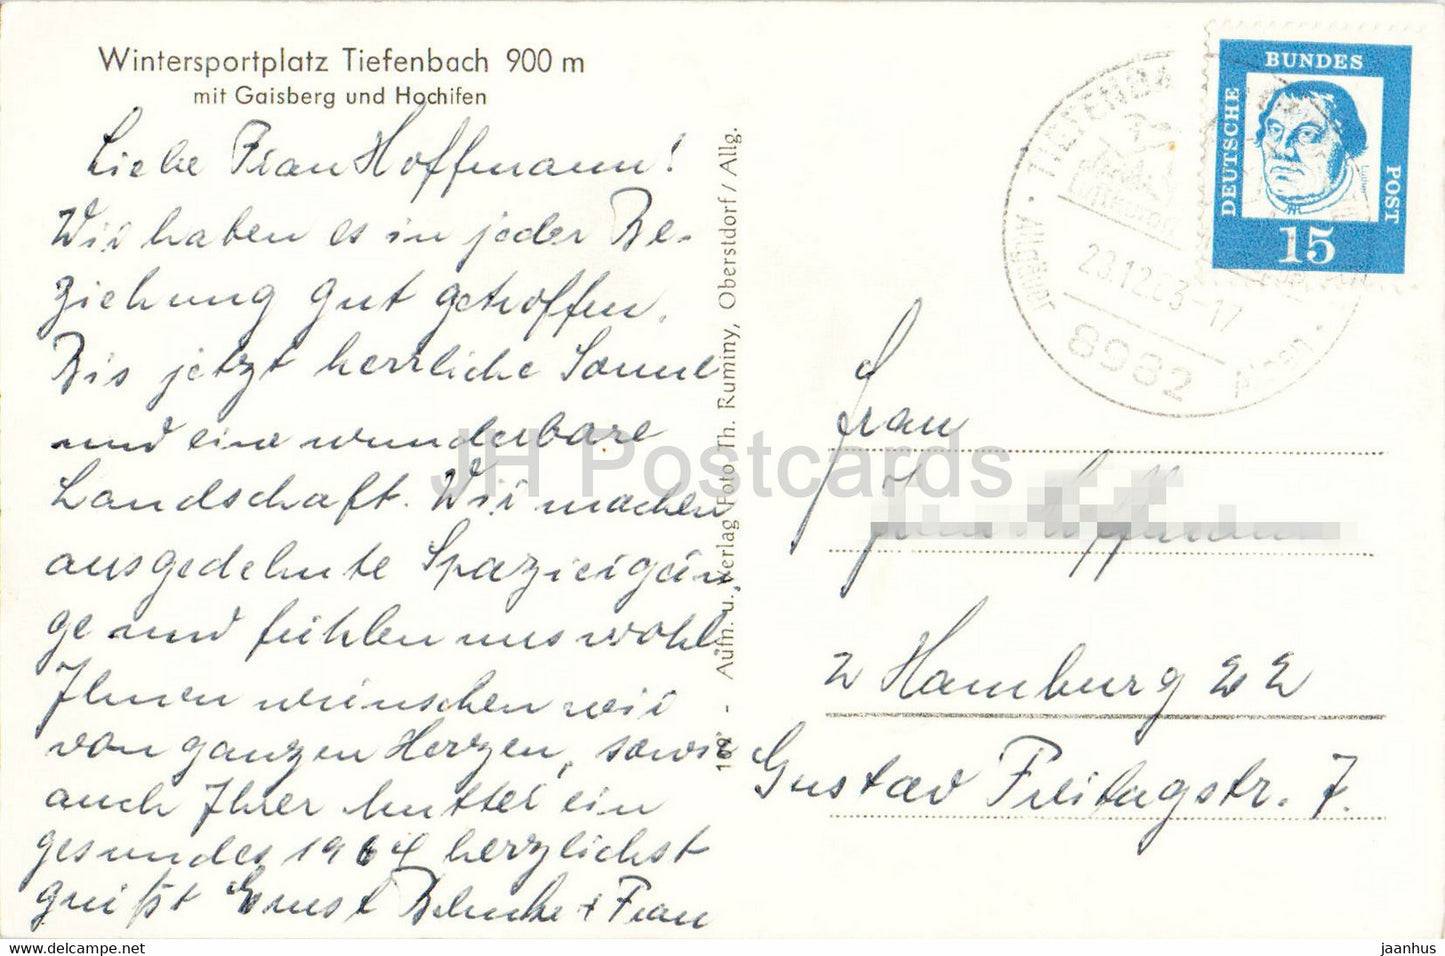 Wintersportplatz Tiefenbach 900 m
mit Gaisberg und Hochifen
Liebe Frau Hoffmann!
Wir haben es in jeder Be-
ziehung gut getroffen.
Bis jetzt herrliche Sonne
und eine wunderbare
Landschaft. Wir machen
ausgedehnte Spaziergän-
ge und fühlen uns wohl
Ihnen wünschen wir
von ganzen Herzen, sowie
auch Ihrer Mutter ein
gesundes 1964 herzlichst
grüßt Ernst + Frau
109 - Aufn. u. Verlag Foto Th. Ruminy, Oberstdorf / Allg.
JH Postcards
DEUTSCHE
BUNDES
POST
Luther
15
TIEFENBA
ALLGÄU
23.12.63-17
8982
Frau
Hoffmann
2 Hamburg 22
Gustav Freitagstr. 7.
www.hippostcard.com
jaanhus